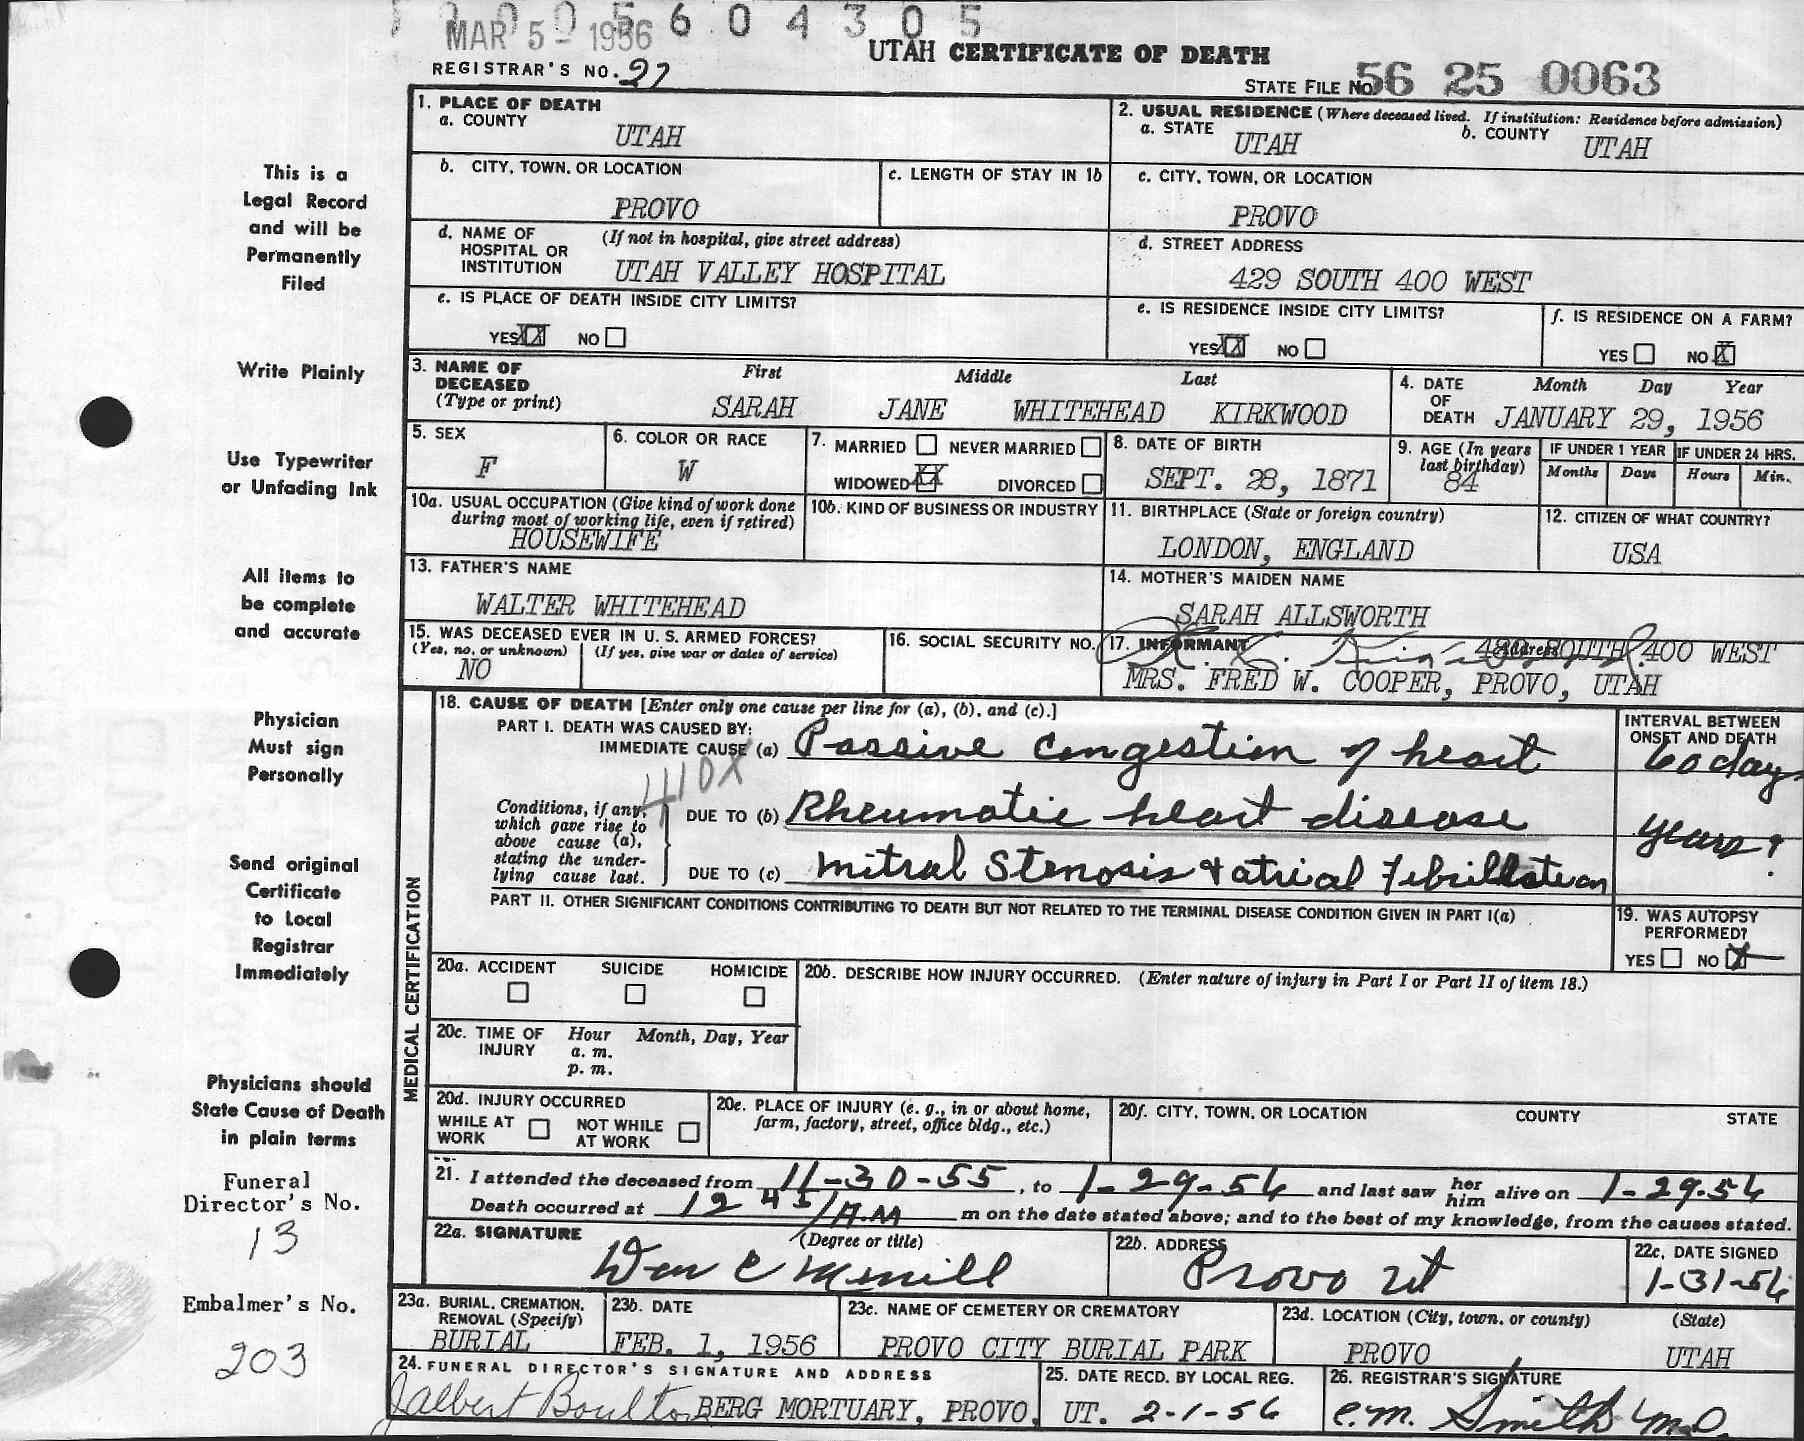 1 0 0 5 6 0 4 3 0 5
MAR 5 - 1956
UTAH CERTIFICATE OF DEATH
REGISTRAR'S NO. 27
STATE FILE NO. 56 25 0063
1. PLACE OF DEATH
a. COUNTY
UTAH
2. USUAL RESIDENCE (Where deceased lived. If institution: Residence before admission)
a. STATE UTAH b. COUNTY UTAH
b. CITY, TOWN, OR LOCATION
PROVO
c. LENGTH OF STAY IN 1b
c. CITY, TOWN, OR LOCATION
PROVO
d. NAME OF HOSPITAL OR INSTITUTION (If not in hospital, give street address)
UTAH VALLEY HOSPITAL
d. STREET ADDRESS
429 SOUTH 400 WEST
e. IS PLACE OF DEATH INSIDE CITY LIMITS?
YES XX NO
e. IS RESIDENCE INSIDE CITY LIMITS?
YES XX NO
f. IS RESIDENCE ON A FARM?
YES NO X
3. NAME OF DECEASED (Type or print)
First Middle Last
SARAH JANE WHITEHEAD KIRKWOOD
4. DATE OF DEATH Month Day Year
JANUARY 29, 1956
5. SEX
F
6. COLOR OR RACE
W
7. MARRIED NEVER MARRIED
WIDOWED XX DIVORCED
8. DATE OF BIRTH
SEPT. 28, 1871
9. AGE (In years last birthday)
84
IF UNDER 1 YEAR IF UNDER 24 HRS.
Months Days Hours Min.
10a. USUAL OCCUPATION (Give kind of work done during most of working life, even if retired)
HOUSEWIFE
10b. KIND OF BUSINESS OR INDUSTRY
11. BIRTHPLACE (State or foreign country)
LONDON, ENGLAND
12. CITIZEN OF WHAT COUNTRY?
USA
13. FATHER'S NAME
WALTER WHITEHEAD
14. MOTHER'S MAIDEN NAME
SARAH ALLSWORTH
15. WAS DECEASED EVER IN U. S. ARMED FORCES?
(Yes, no, or unknown) (If yes, give war or dates of service)
NO
16. SOCIAL SECURITY NO.
17. INFORMANT Address SOUTH 400 WEST
MRS. FRED W. COOPER, PROVO, UTAH
MEDICAL CERTIFICATION
18. CAUSE OF DEATH [Enter only one cause per line for (a), (b), and (c).]
PART I. DEATH WAS CAUSED BY:
IMMEDIATE CAUSE (a) Passive Congestion of heart
INTERVAL BETWEEN ONSET AND DEATH
60 days
410X
Conditions, if any, which gave rise to above cause (a), stating the underlying cause last.
DUE TO (b) Rheumatic heart disease
years?
DUE TO (c) mitral Stenosis + atrial Fibrillation
PART II. OTHER SIGNIFICANT CONDITIONS CONTRIBUTING TO DEATH BUT NOT RELATED TO THE TERMINAL DISEASE CONDITION GIVEN IN PART I(a)
19. WAS AUTOPSY PERFORMED?
YES NO X
20a. ACCIDENT SUICIDE HOMICIDE
20b. DESCRIBE HOW INJURY OCCURRED. (Enter nature of injury in Part I or Part II of item 18.)
20c. TIME OF INJURY Hour Month, Day, Year
a. m.
p. m.
20d. INJURY OCCURRED
WHILE AT WORK NOT WHILE AT WORK
20e. PLACE OF INJURY (e. g., in or about home, farm, factory, street, office bldg., etc.)
20f. CITY, TOWN, OR LOCATION COUNTY STATE
21. I attended the deceased from 11-30-55, to 1-29-56 and last saw her him alive on 1-29-56
Death occurred at 12 45 A.M m on the date stated above; and to the best of my knowledge, from the causes stated.
22a. SIGNATURE (Degree or title)
Don C Merrill
22b. ADDRESS
Provo Ut
22c. DATE SIGNED
1-31-56
23a. BURIAL, CREMATION, REMOVAL (Specify)
BURIAL
23b. DATE
FEB. 1, 1956
23c. NAME OF CEMETERY OR CREMATORY
PROVO CITY BURIAL PARK
23d. LOCATION (City, town, or county) (State)
PROVO UTAH
24. FUNERAL DIRECTOR'S SIGNATURE AND ADDRESS
Jalbert Boulton BERG MORTUARY, PROVO, UT.
25. DATE RECD. BY LOCAL REG.
2-1-56
26. REGISTRAR'S SIGNATURE
C.M. Smith MD.
This is a
Legal Record
and will be
Permanently
Filed
Write Plainly
Use Typewriter
or Unfading Ink
All items to
be complete
and accurate
Physician
Must sign
Personally
Send original
Certificate
to Local
Registrar
Immediately
Physicians should
State Cause of Death
in plain terms
Funeral
Director's No.
13
Embalmer's No.
203